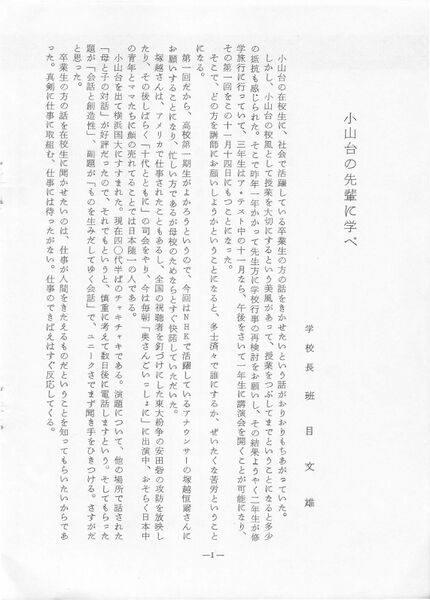 小山台の先輩に学べ
学校長　班目文雄
小山台の在校生に、社会で活躍している卒業生の方の話をきかせたいという話がおりおりもちあがっていた。
しかし、小山台の校風として授業を大切にするという美風があって、授業をつぶしてまでということになると多少
の抵抗も感じられた。そこで昨年一年かかって先生方に学校行事の再検討をお願いし、その結果ようやく二年生が修
学旅行に行っていて、三年生はア・テスト中の十一月なら、午後をさいて一年生に講演会を開くことが可能になり、
その第一回をこの十一月十四日にもつことになった。
そこで、どの方を講師にお願いしようかということになると、多士済々で誰にするか、ぜいたくな苦労ということ
になる。
第一回だから、高校第一期生がよかろうというので、今回はNHKで活躍しているアナウンサーの塚越恒爾さんに
お願いすることになり、忙しい方であるが母校のためならとすぐ快諾していただいた。
塚越さんは、アメリカで仕事されたこともあるし、全国の視聴者を釘づけにした東大紛争の安田砦の攻防を放映し
たり、その後しばらく「十代とともに」の司会をやり、今は毎朝「奥さんごいっしょに」に出演中、おそらく日本中
の青年とママたちに顔の売れてることでは日本随一の人である。
小山台を出て横浜国大にすすまれた。現在四〇代半ばのチャキチャキである。演題について、他の場所で話された
「母と子の対話」が好評だったので、それでもというと、慎重に考えて数日後に電話しますという。そしてもらった
題が「会話と創造性」、副題が「ものを生みだしてゆく会話」で、ユニークさでまず聞き手をひきつける。さすがだ
と思った。
卒業生の方の話を在校生に聞かせたいのは、仕事が人間をきたえるものだということを知ってもらいたいからであ
った。真剣に仕事に取組む、仕事には待ったがない。仕事のできばえはすぐ反応してくる。
―1―